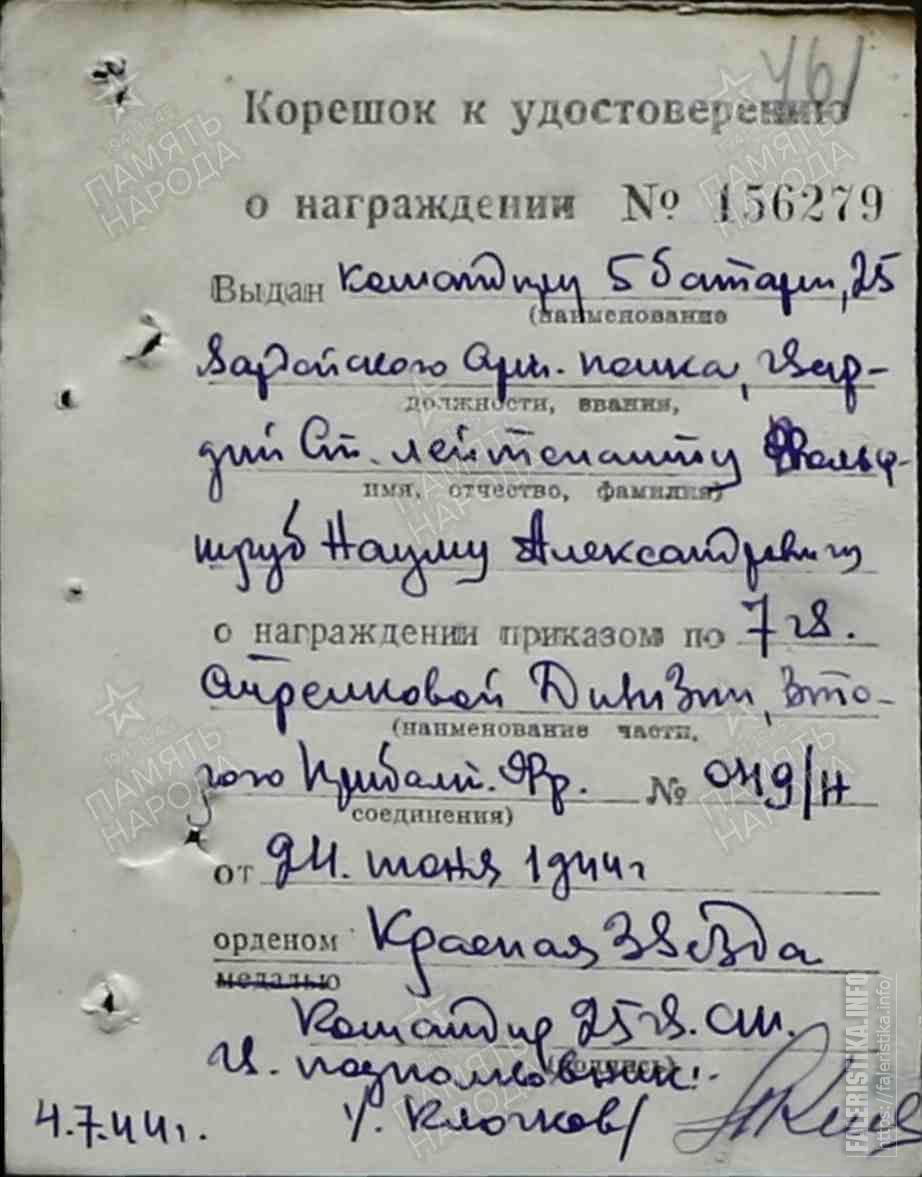 461
Корешок к удостоверению
о награждении № 156279
Выдан Командиру 5 батареи, 25
(наименование
Гвардейского Арт. полка, Гвар-
должности, звания,
дии Ст. лейтенанту Вольф-
имя, отчество, фамилия)
труб Науму Александровичу
о награждении приказом по 7 гв.
Стрелковой Дивизии, Вто-
(наименование части,
рого Прибалт. Фр. № 049/н
соединения)
от 24. июня 1944г
орденом Красная Звезда
медалью
Командир 25 гв.
(подпись)
Гв. подполковник:
4.7.44г. /. Клочков/
ПАМЯТЬ НАРОДА
FALERISTIKA.INFO
https://faleristika.info/